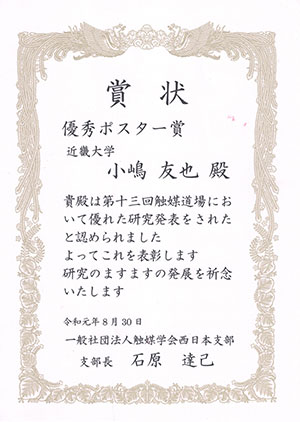 賞状
優秀ポスター賞
近畿大学
小嶋 友也 殿
貴殿は第十三回触媒道場にお
いて優れた研究発表をされた
と認められました
よってこれを表彰します
研究のますますの発展を祈念
いたします
令和元年8月30日
一般社団法人触媒学会西日本支部
支部長 石原 達己